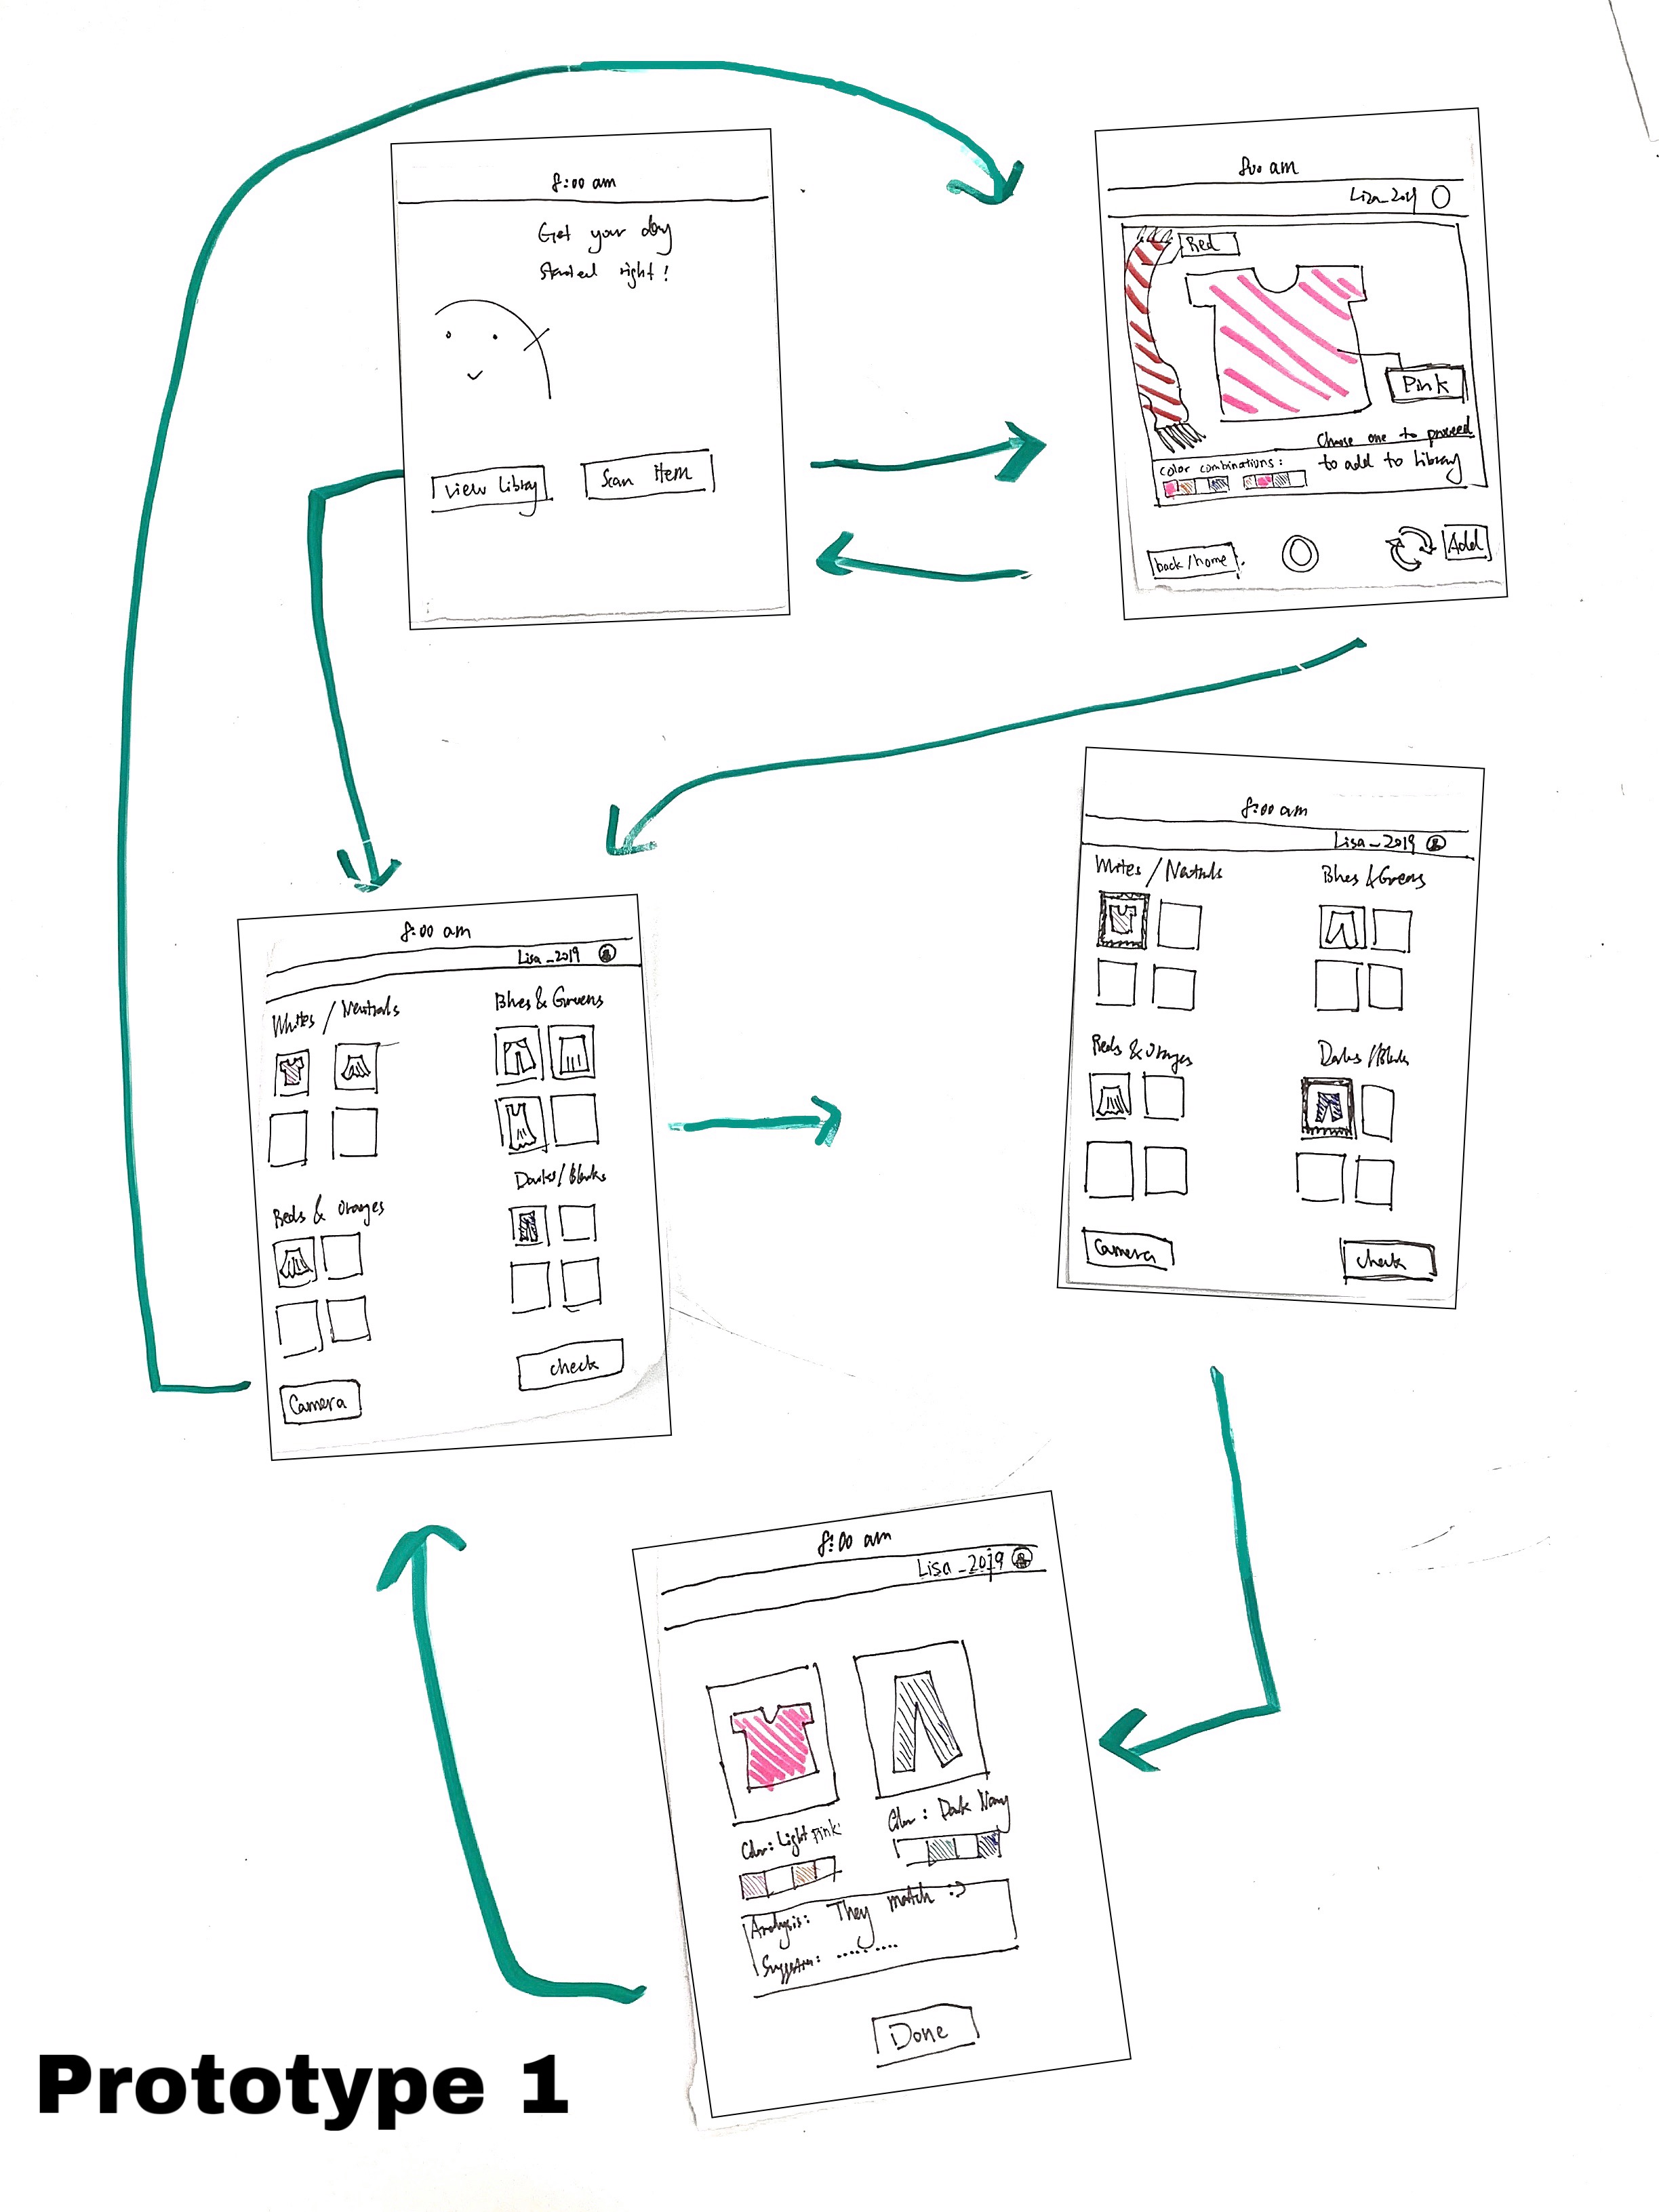 8:00 am
Get your day
started right!
View Library
Scan Item
8:00 am
Lisa_2019
Red
Pink
Choose one to proceed
to add to Library
color combinations:
back/home
Add
8:00 am
Lisa_2019
Whites / Neutrals
Blues & Greens
Reds & Oranges
Darks/Blacks
Camera
check
8:00 am
Lisa_2019
Whites / Neutrals
Blues & Greens
Reds & Oranges
Darks/Blacks
Camera
check
8:00 am
Lisa_2019
Color: Light Pink
Color: Dark Navy
Analysis: They match :)
Suggestion: .........
Done
Prototype 1